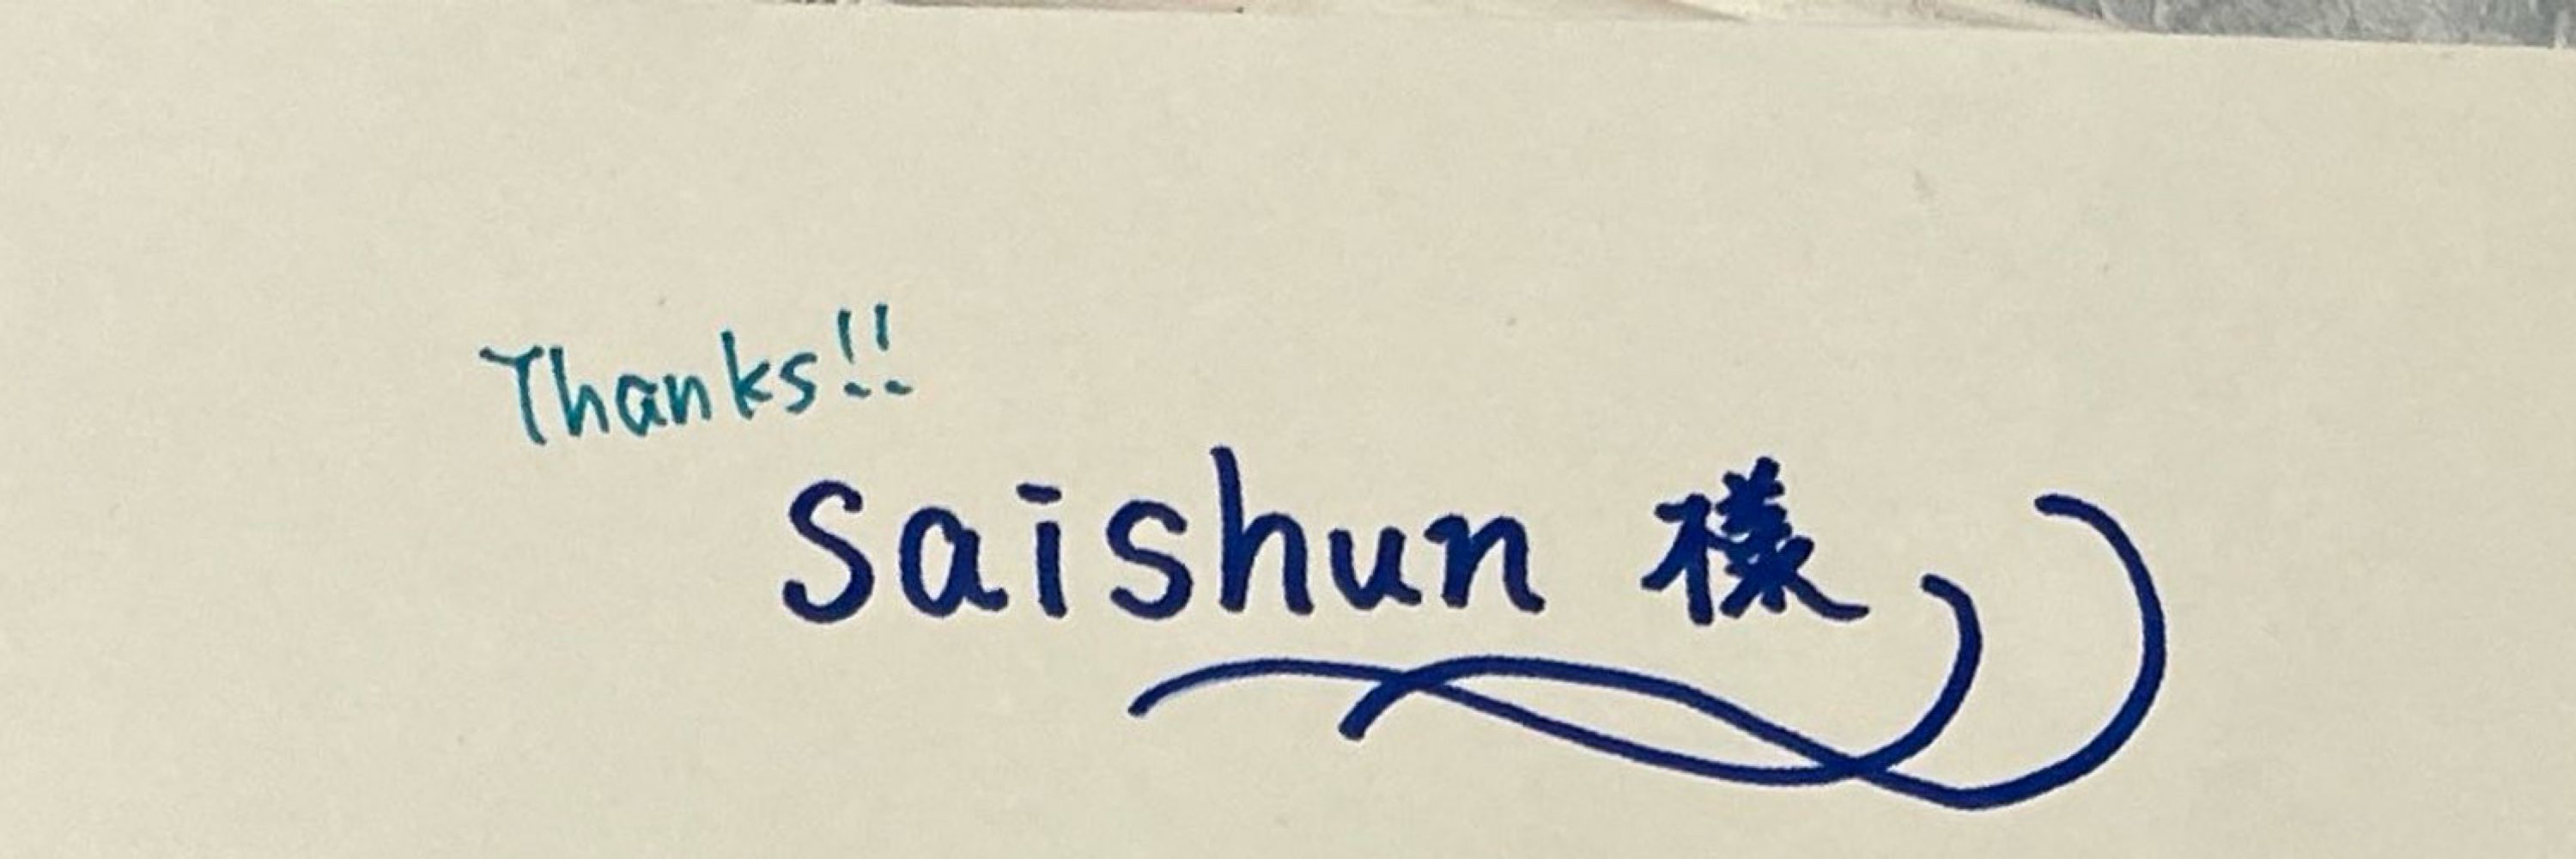 Thanks!!
Saishun 様